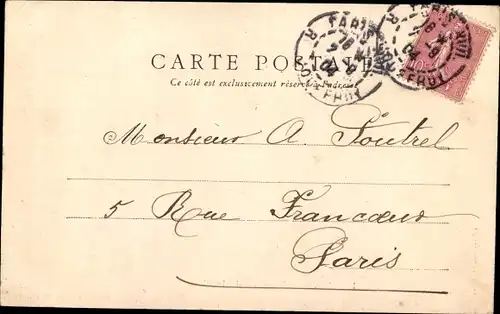 CARTE POSTALE
Ce côté est exclusivement réservé à l'adresse
Monsieur A. Poutrel
5 Rue Francœur
Paris